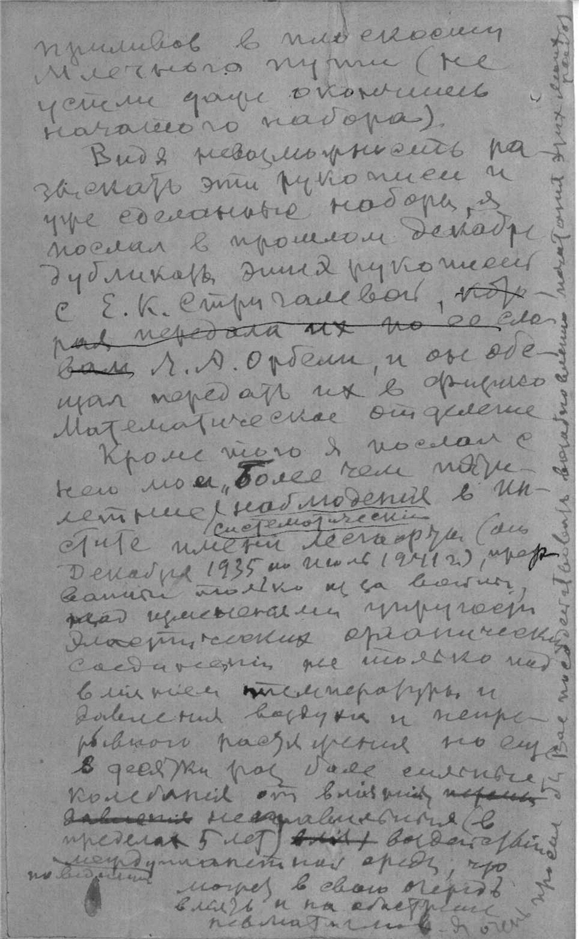 приливов в плоскости
Млечного пути (не
успели даже окончить
начатого набора).
Видя невозможность ра-
зыскать эти рукописи и
уже сделанные наборы, я
послал в прошлом декабре
дубликаты этих рукописей
с Е. К. Стригалевой, кото-
рая передала их по ее сло-
вам Л. А. Орбели, и он обе-
щал передать их в физико
Математическое отделение
Кроме того я послал с
нею мои „Более чем пяти-
летние наблюдения в Ин-
систематический
стите имени Лесгафта (от
Декабря 1935 по июль 1941 г.), прер
ванныи только из за войны,
над изменениями упругости
Эластических органических
соединений не только под
влиянием температуры и
давления воздуха и непре-
рывного растяжения но еще
в десятки раз более сильные
колебания от влияния
давления (в
пределах 5 лет) воздействий
междупланетной среды, что
по видимому
может в свою очередь
влиять и на обострение
ревматизмов. Я очень
просил бы Вас посодействовать возобновлению печатания этих моих
работ